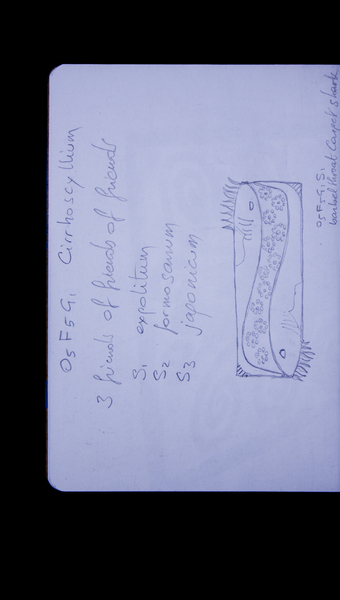 O5 F5 G1 Cirrhoscyllium
3 friends of friends of friends
S1 expolitum
S2 formosanum
S3 japonicum
O5 F5 G1 S1
barbelthroat carpet shark